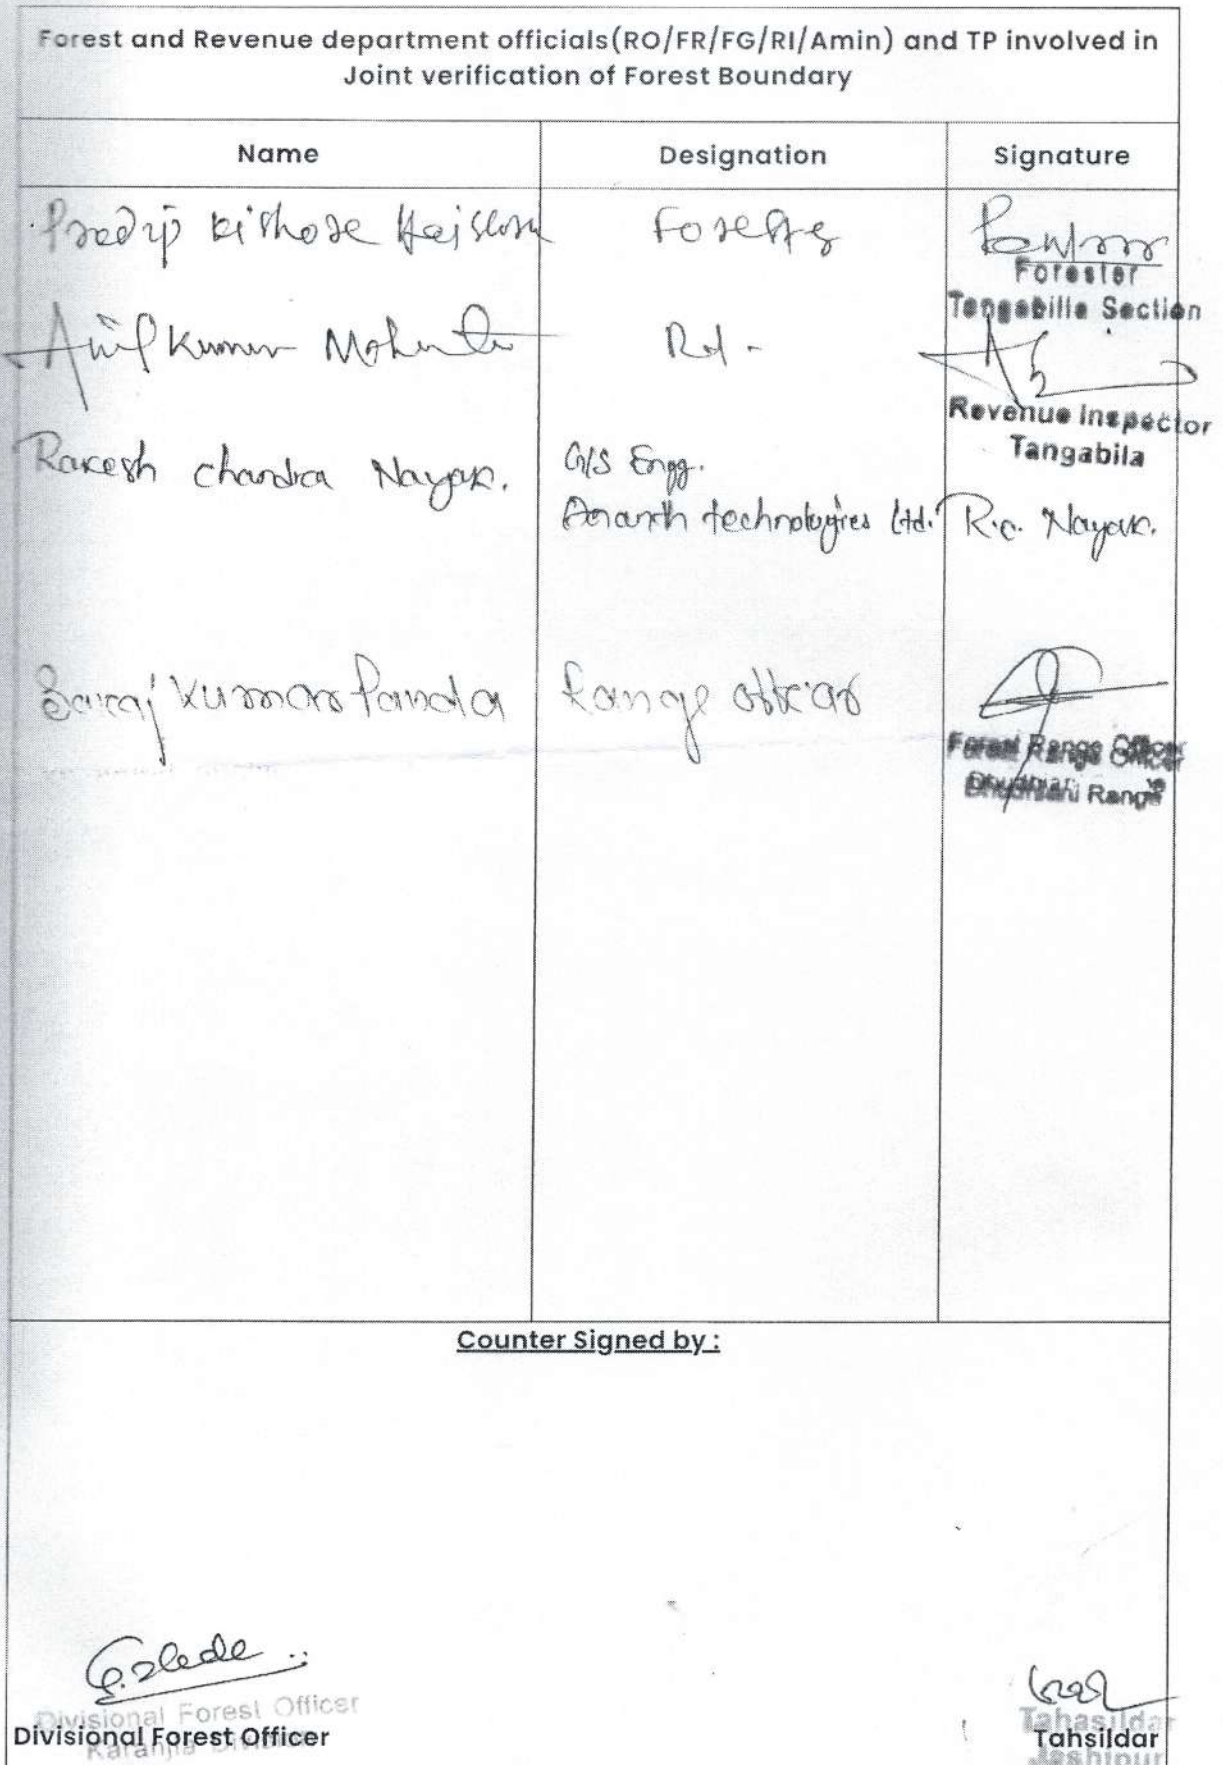 Forest and Revenue department officials(RO/FR/FG/RI/Amin) and TP involved in
Joint verification of Forest Boundary
Name Designation Signature
Pradip kishore Forester
Forester
Tangabilla Section
Anil Kumar Mohanta R.I -
Revenue Inspector
Tangabila
Rakesh chandra Nayak. GIS Engg.
Ananth technologies Ltd. R.c. Nayak.
Kumar Panda Range officer
Forest Range Officer
Range
Counter Signed by :
Divisional Forest Officer
Divisional Forest Officer
Karanjia Division
Tahasildar
Tahsildar
Jashipur